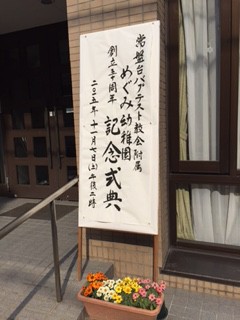 常盤台バプテスト教会附属
めぐみ幼稚園
創立五十周年 記念式典
二〇一五年 十一月七日(土)午後二時